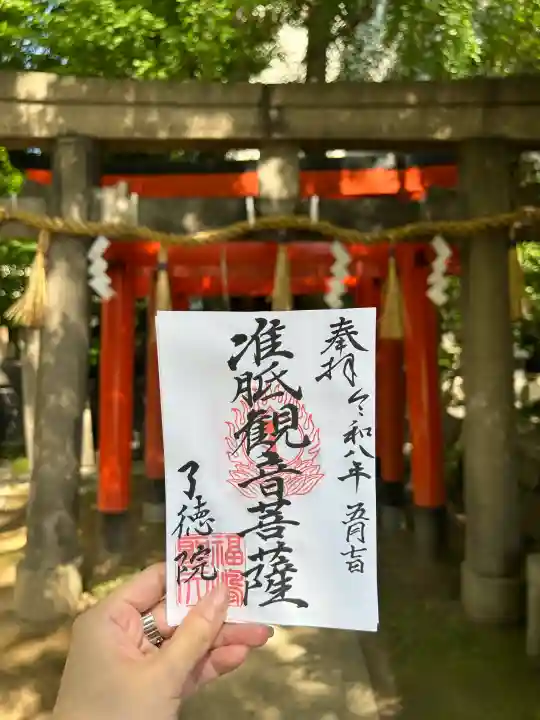 奉拝 令和八年 五月七日
准胝観音菩薩
了徳院